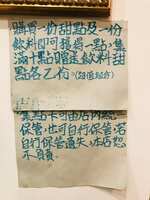 購買一份甜點及一份
飲料即可獲得一點,集
滿十點贈送飲料甜
點各乙份。(超值超好)
集點卡可由店內統一
保管,也可自行保管,若
自行保管遺失,本店恕
不負責。